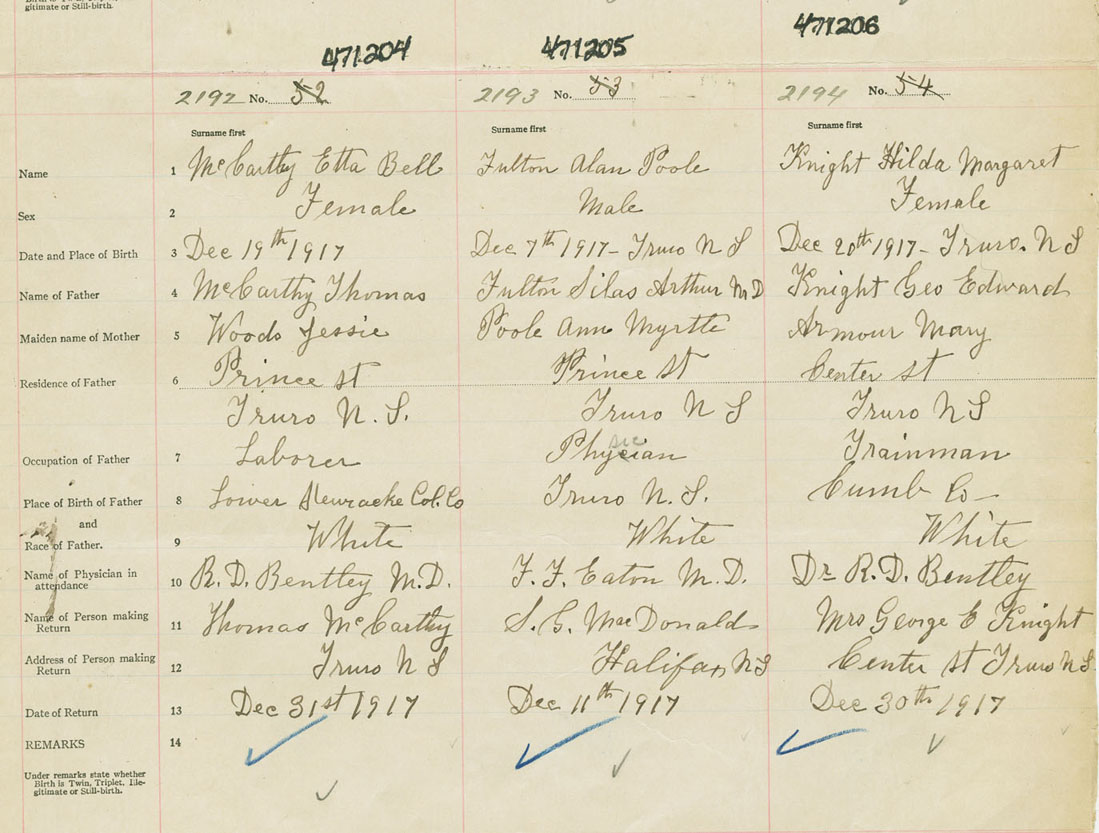 Birth is Twin, Triplet, Ille-
gitimate or Still-birth.
471204 471205 471206
2192 No. 52 2193 No. 53 2194 No. 54
Surname first Surname first Surname first
Name 1 McCarthy Etta Bell Fulton Alan Poole Knight Hilda Margaret
Sex 2 Female Male Female
Date and Place of Birth 3 Dec 19th 1917 Dec 7th 1917 - Truro N S Dec 20th 1917 - Truro. N S
Name of Father 4 McCarthy Thomas Fulton Silas Arthur M D Knight Geo Edward
Maiden name of Mother 5 Woods Jessie Poole Ann Myrtle Armour Mary
Residence of Father 6 Prince St Prince St Center St
Truro N. S. Truro N S Truro N S
Occupation of Father 7 Laborer Physician Trainman
Place of Birth of Father 8 Lower Col. Co Truro N. S. Cumb Co -
and
Race of Father. 9 White White White
Name of Physician in
attendance 10 R. D. Bentley M.D. F. F. Eaton M. D. Dr R. D. Bentley
Name of Person making
Return 11 Thomas McCarthy S. G. MacDonald Mrs George E Knight
Address of Person making
Return 12 Truro N S Halifax N S Center St Truro N S
Date of Return 13 Dec 31st 1917 Dec 11th 1917 Dec 30th 1917
REMARKS 14
Under remarks state whether
Birth is Twin, Triplet, Ille-
gitimate or Still-birth.